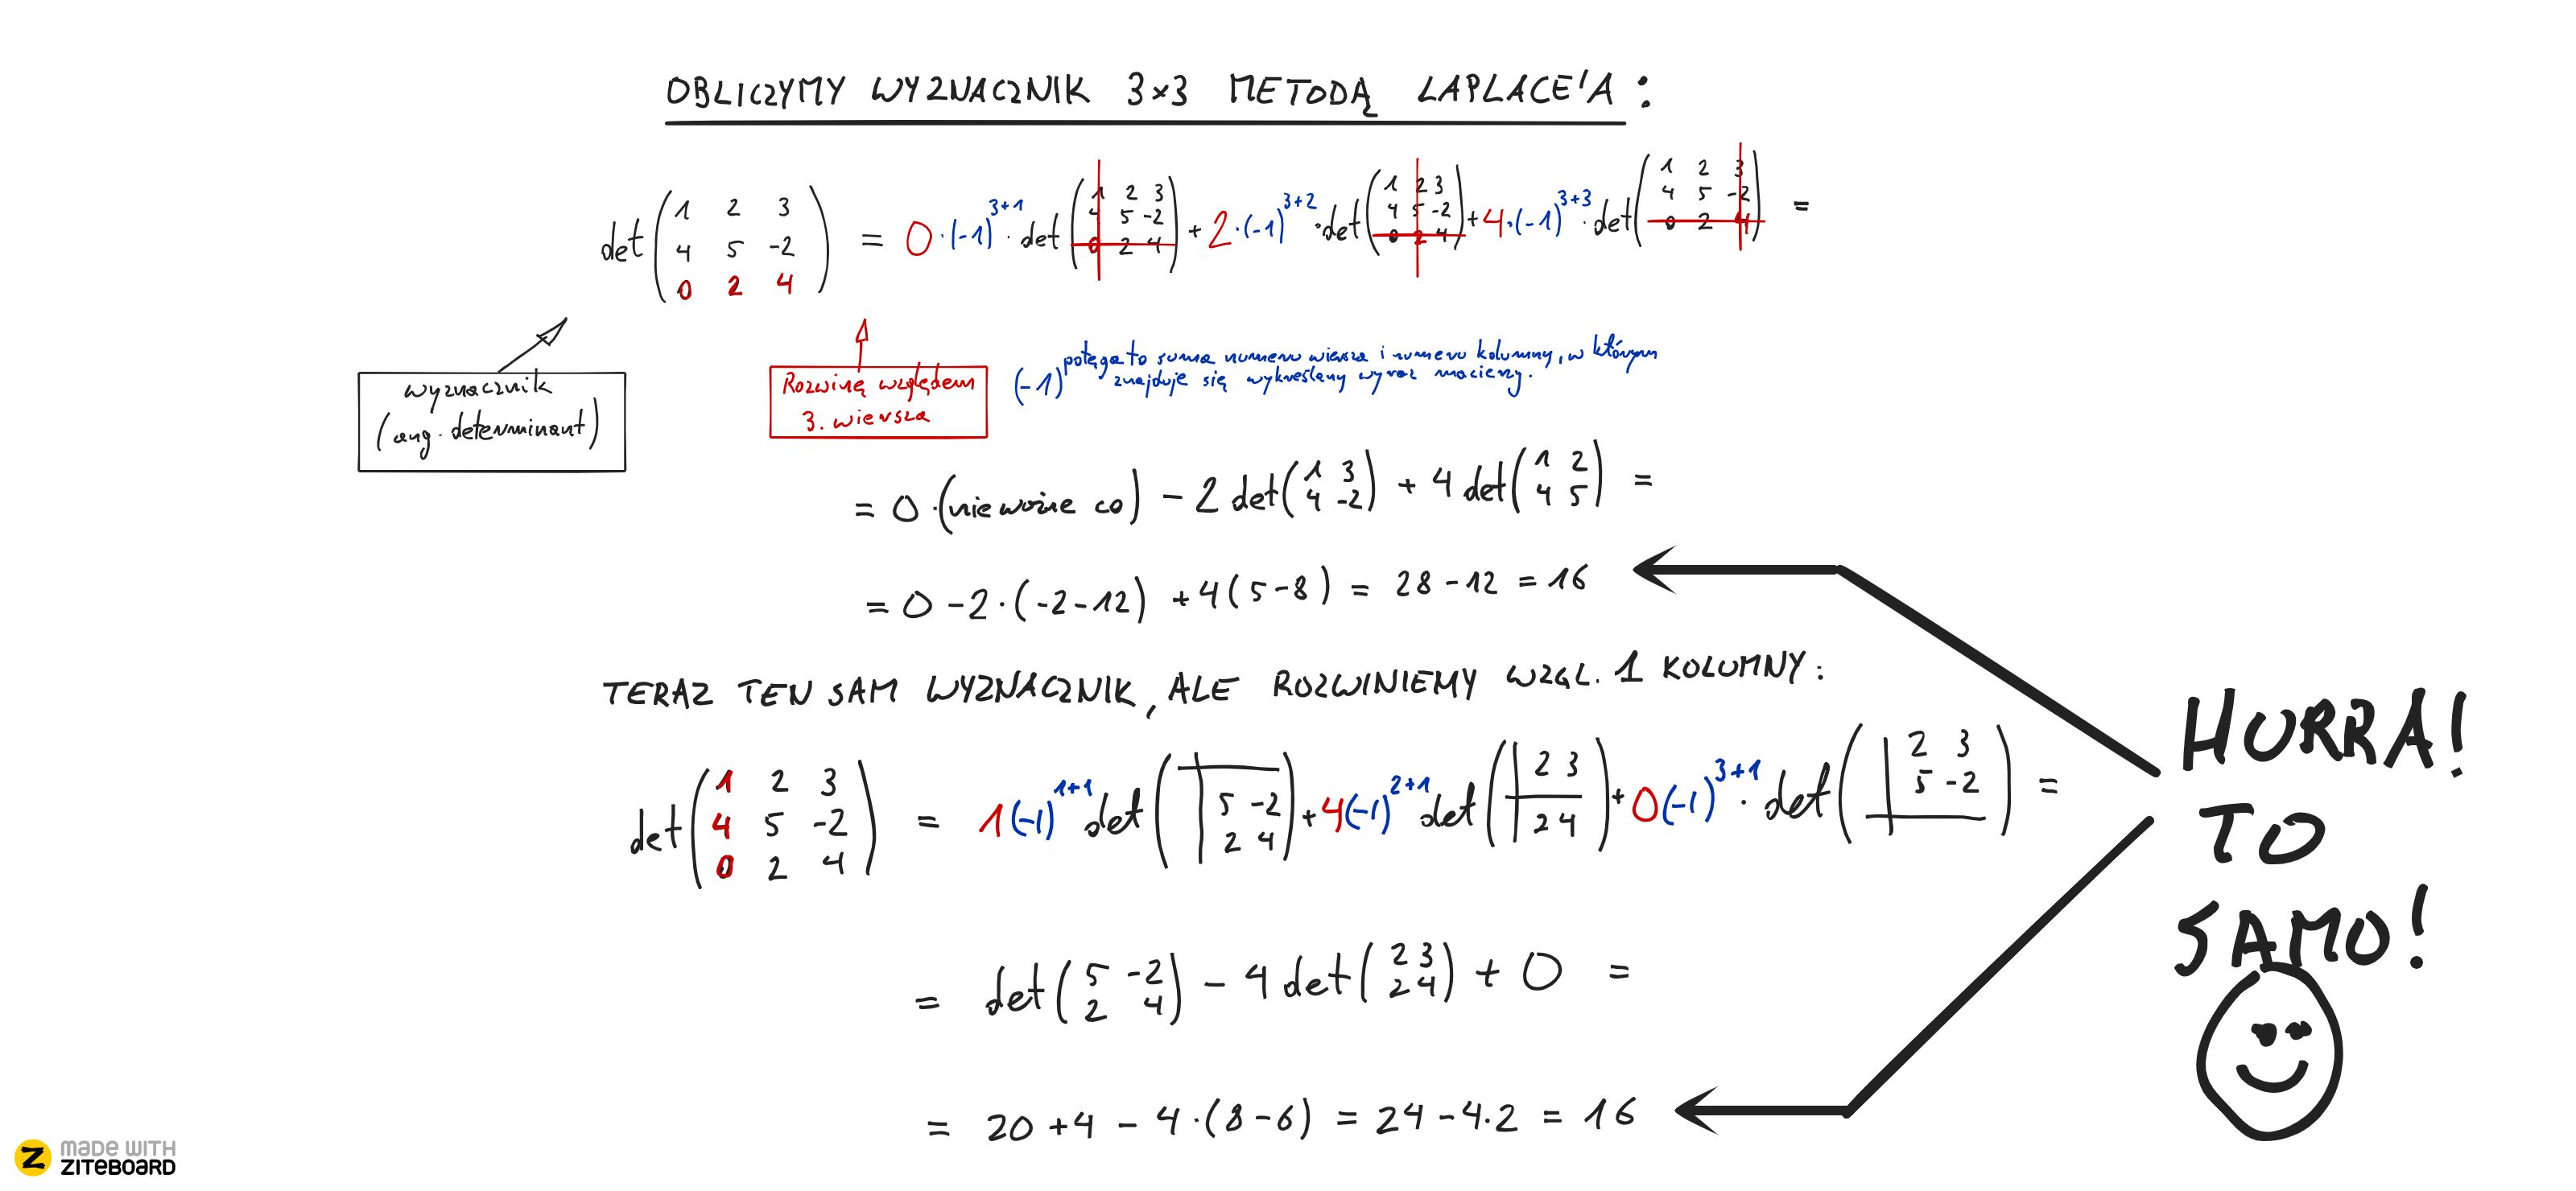 OBLICZYMY WYZNACZNIK 3×3 METODĄ LAPLACE'A :
det(1 2 3; 4 5 -2; 0 2 4) = 0·(-1)^3+1 · det(1 2 3; 4 5 -2; 0 2 4) + 2·(-1)^3+2 · det(1 2 3; 4 5 -2; 0 2 4) + 4·(-1)^3+3 · det(1 2 3; 4 5 -2; 0 2 4) =
wyznacznik
(ang. determinant)
Rozwinę względem
3. wiersza
(-1)^potęga to suma numeru wiersza i numeru kolumny, w którym
znajduje się wykreślany wyraz macierzy.
= 0·(nieważne co) - 2 det(1 3; 4 -2) + 4 det(1 2; 4 5) =
= 0 - 2·(-2-12) + 4(5-8) = 28-12 = 16
TERAZ TEN SAM WYZNACZNIK, ALE ROZWINIEMY WZGL. 1 KOLUMNY:
det(1 2 3; 4 5 -2; 0 2 4) = 1(-1)^1+1 det(5 -2; 2 4) + 4(-1)^2+1 det(2 3; 2 4) + 0(-1)^3+1 · det(2 3; 5 -2) =
= det(5 -2; 2 4) - 4 det(2 3; 2 4) + 0 =
= 20+4 - 4·(8-6) = 24-4·2 = 16
HURRA!
TO
SAMO!
MADE WITH
ZITEBOARD